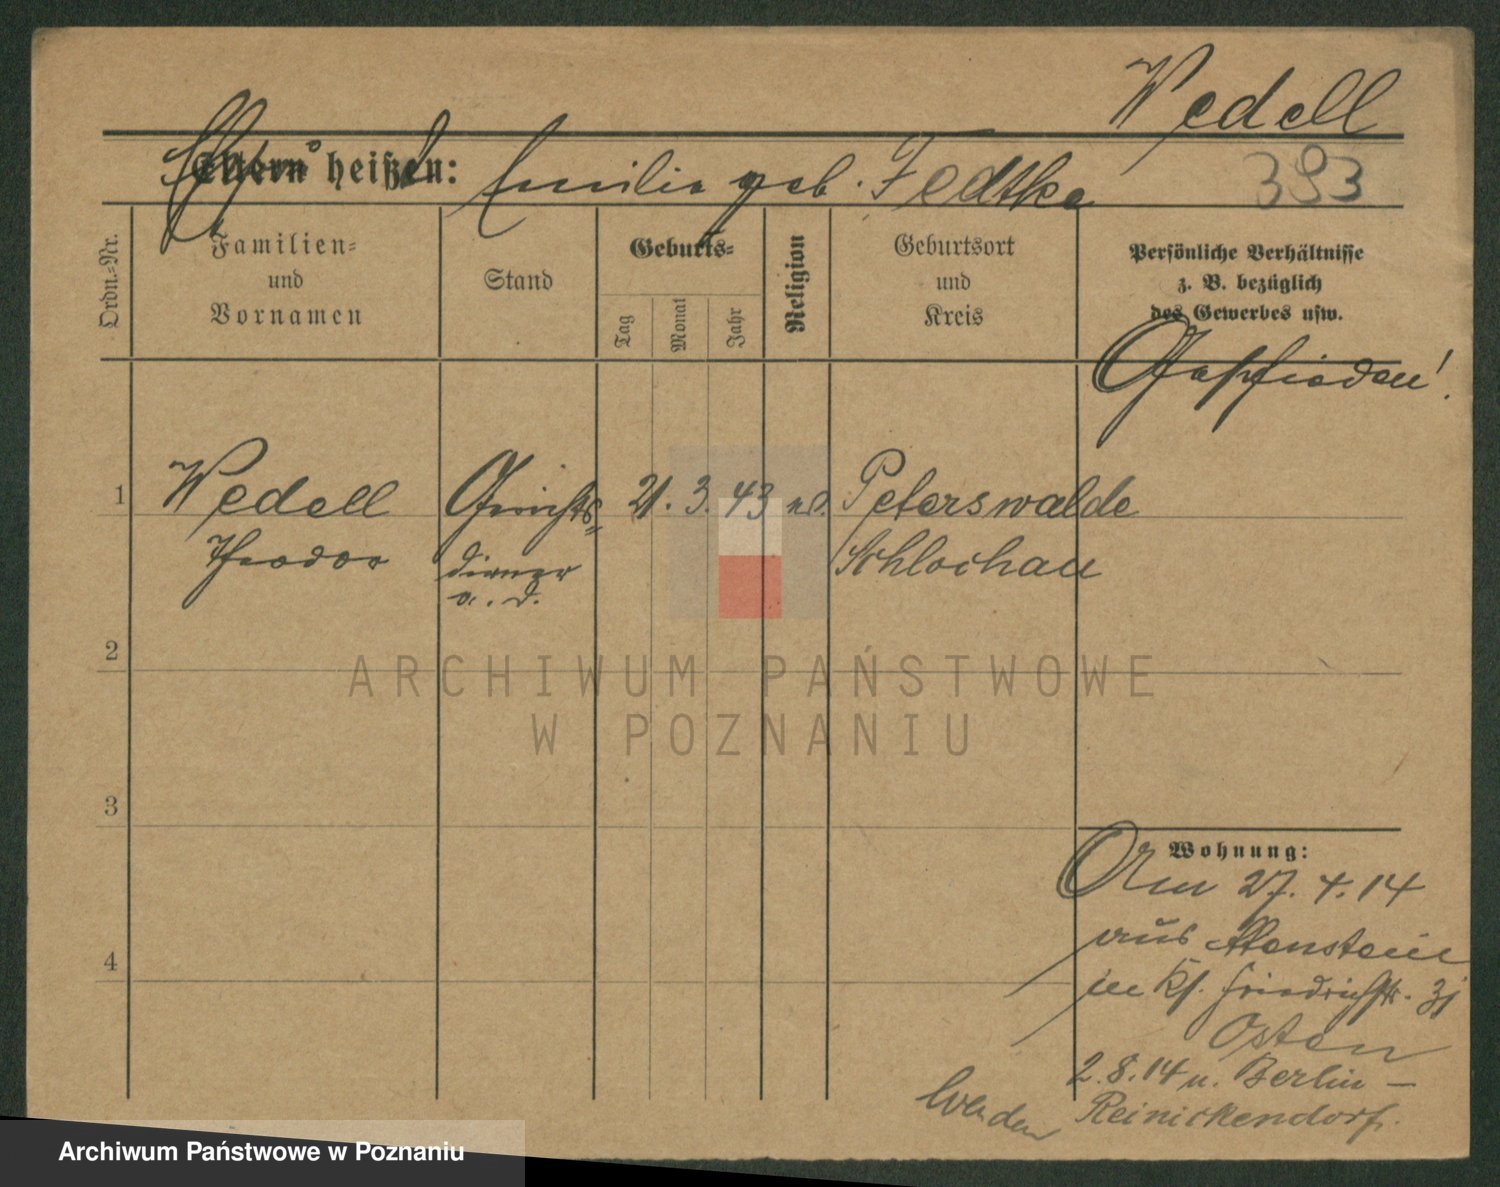 Wedell
Eltern heißen: Emilie geb. Fedtke 393
Ordn.=Nr.
Familien=
und
Vornamen
Stand
Geburts=
Tag
Monat
Jahr
Religion
Geburtsort
und
Kreis
Persönliche Verhältnisse
z. B. bezüglich
des Gewerbes usw.
Geschieden!
1 Wedell Gerichts= 21. 3. 43 Peterswalde
Theodor diener Schlochau
a. D.
2
3
Wohnung:
Am 27. 4. 14
aus Allenstein
4
in Friedrichstr. 31
Osten
2. 8. 14 n. Berlin -
Wenden Reinickendorf.
ARCHIWUM PAŃSTWOWE
W POZNANIU
Archiwum Państwowe w Poznaniu